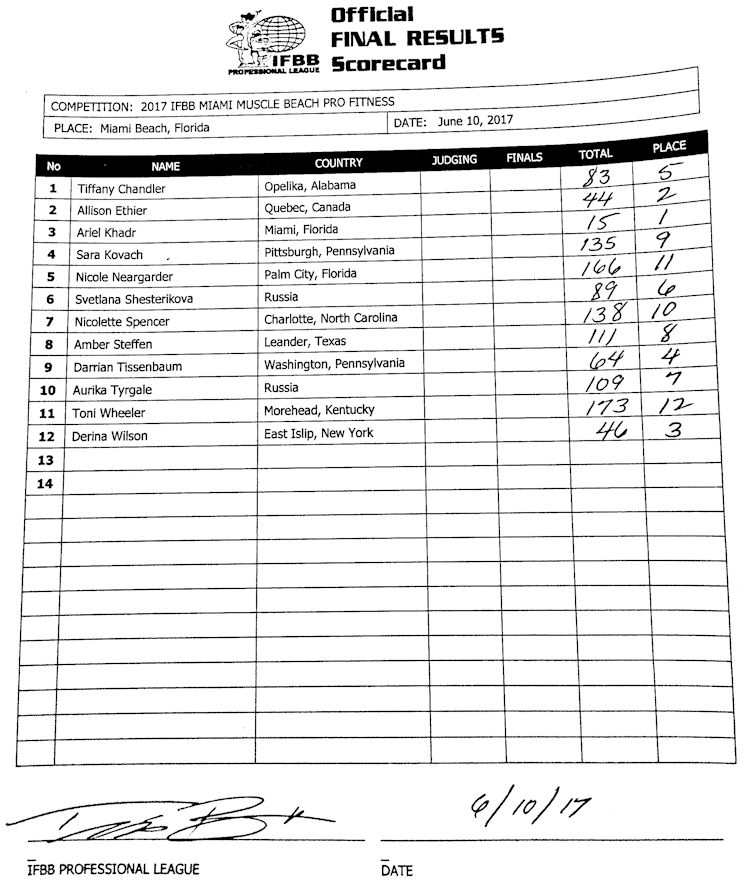 Official
FINAL RESULTS
Scorecard
IFBB
PROFESSIONAL LEAGUE
COMPETITION: 2017 IFBB MIAMI MUSCLE BEACH PRO FITNESS
PLACE: Miami Beach, Florida DATE: June 10, 2017
No NAME COUNTRY JUDGING FINALS TOTAL PLACE
1 Tiffany Chandler Opelika, Alabama 83 5
2 Allison Ethier Quebec, Canada 44 2
3 Ariel Khadr Miami, Florida 15 1
4 Sara Kovach Pittsburgh, Pennsylvania 135 9
5 Nicole Neargarder Palm City, Florida 166 11
6 Svetlana Shesterikova Russia 89 6
7 Nicolette Spencer Charlotte, North Carolina 138 10
8 Amber Steffen Leander, Texas 111 8
9 Darrian Tissenbaum Washington, Pennsylvania 64 4
10 Aurika Tyrgale Russia 109 7
11 Toni Wheeler Morehead, Kentucky 173 12
12 Derina Wilson East Islip, New York 46 3
13
14
6/10/17
IFBB PROFESSIONAL LEAGUE DATE